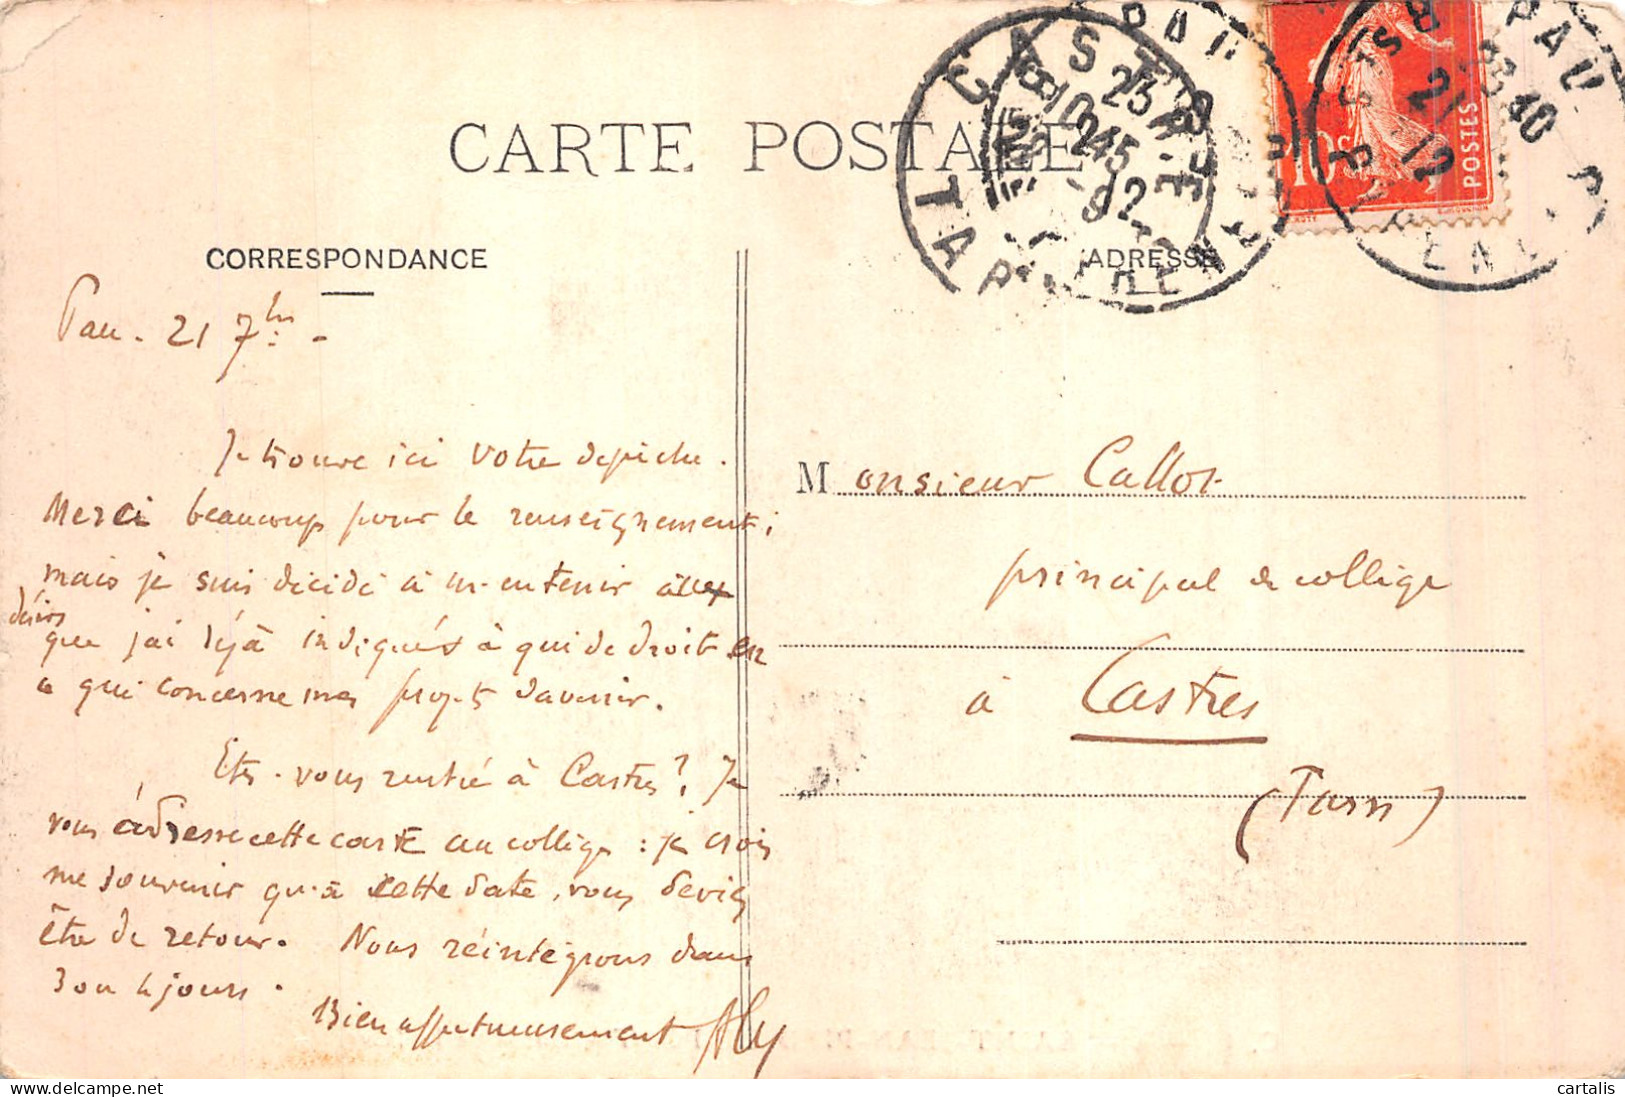 CARTE POSTALE
CORRESPONDANCE
ADRESSE
Pau. 21 7bre -
Je trouve ici votre dépêche.
Merci beaucoup pour le renseignement ;
mais je suis décidé à m'en tenir
désirs
que j'ai déjà indiqués à qui de droit en
ce qui concerne mes projets d'avenir.
Etes-vous rentré à Castres ? Je
vous adresse cette carte au collège : je crois
me souvenir qu'à cette date, vous deviez
être de retour. Nous réintégrons dans
3 ou 4 jours.
Bien affectueusement
Monsieur Callot
principal de collège
à Castres
(Tarn)
CASTRES
TARN
PAU
21
12
10c
POSTES
cartalis